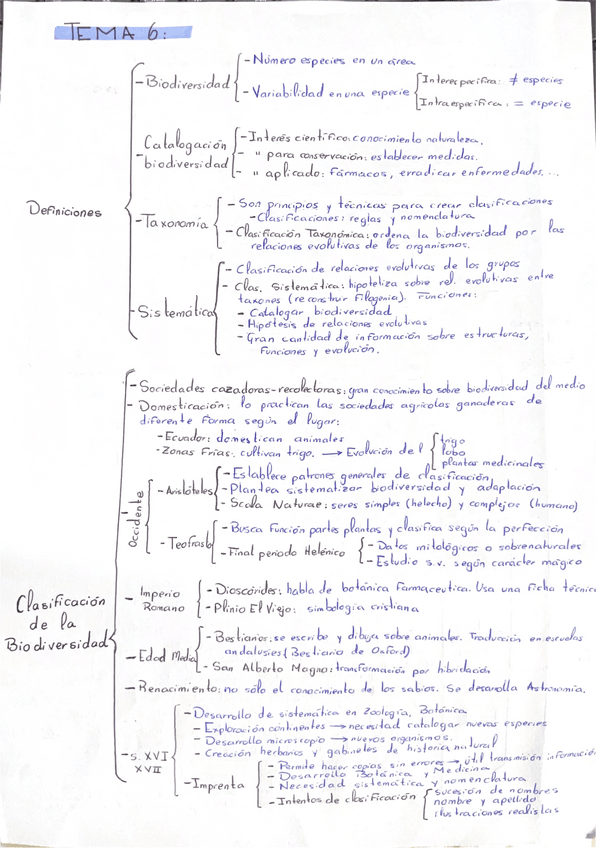 TEMA 6:
Definiciones
- Biodiversidad
- Número especies en un área
- Variabilidad en una especie
Interespecífica: ≠ especies
Intraespecífica: = especie
- Catalogación biodiversidad
- Interés científico: conocimiento naturaleza.
- " para conservación: establecer medidas.
- " aplicado: fármacos, erradicar enfermedades, ...
- Taxonomía
- Son principios y técnicas para crear clasificaciones
- Clasificaciones: reglas y nomendatura
- Clasificación Taxonómica: ordena la biodiversidad por las
relaciones evolutivas de los organismos.
- Sistemática
- Clasificación de relaciones evolutivas de los grupos
- Clas. Sistemática: hipotetiza sobre rel. evolutivas entre
taxones (reconstruir Filogenia). Funciones:
- Catalogar biodiversidad
- Hipótesis de relaciones evolutivas
- Gran cantidad de información sobre estructuras,
funciones y evolución.
Clasificación
de la
Biodiversidad
- Sociedades cazadoras-recolectoras: gran conocimiento sobre biodiversidad del medio
- Domesticación: lo practican las sociedades agrícolas ganaderas de
diferente forma según el lugar:
- Ecuador: domestican animales
- Zonas Frías: cultivan trigo. → Evolución del
trigo
lobo
plantas medicinales
- Occidente
- Aristóteles
- Establece patrones generales de clasificación
- Plantea sistematizar biodiversidad y adaptación
- Scala Naturae: seres simples (helecho) y complejos (humano)
- Teofrasto
- Busca Función partes plantas y clasifica según la perfección
- Final periodo Helénico
- Datos mitológicos o sobrenaturales
- Estudio s.v. según carácter mágico
- Imperio
Romano
- Dioscórides: habla de botánica Farmaceutica. Usa una ficha técnica
- Plinio El Viejo: simbología cristiana
- Edad Media
- Bestiarios: se escribe y dibuja sobre animales. Traducción en escuelas
andalusíes (Bestiario de Oxford)
- San Alberto Magno: transformación por hibridación
- Renacimiento: no sólo el conocimiento de los sabios. Se desarolla Astronomía.
- s. XVI
XVII
- Desarrollo de sistemática en Zoología, Botánica
- Exploración continentes → necesidad catalogar nuevas especies
- Desarrollo microscopio → nuevos organismos.
- Creación herbarios y gabinetes de historia natural
- Imprenta
- Permite hacer copias sin errores → útil transmisión información
- Desarrollo Botánica y Medicina
- Necesidad sistemática y nomenclatura
- Intentos de clasificación
sucesión de nombres
nombre y apellido
ilustraciones realistas